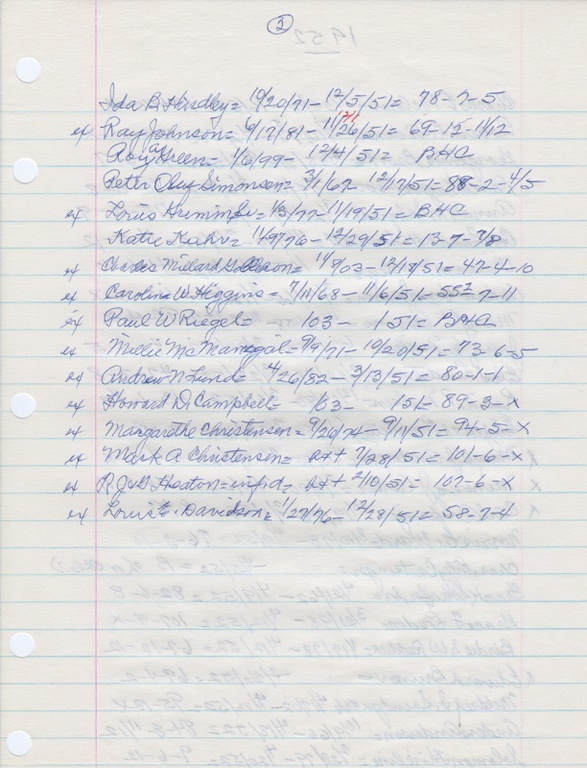 2
Ida B. Hindley = 10/20/71 - 12/5/51 = 78-7-5
12/1
ex Ray Johnson = 6/17/81 - 11/26/51 = 69-12-11/12
Roy Green = 1/6/99 - 12/4/51 = BHC
Peter Oluf Simonsen = 3/1/67 - 12/17/51 = 88-2-4/5
ex Louis = 1/3/77 - 11/19/51 = BHC
Katie Kuhr = 11/9/76 - 12/29/51 = 13-7-7/8
ex Charles Millard = 11/8/03 - 12/18/51 = 47-4-10
ex Caroline W. Higgins = 7/11/68 - 11/6/51 = 552-7-11
ex Paul W Riegel = 103 - 151 = BHC
ex Millie McManegal = 9/9/71 - 10/20/51 = 73-6-5
ex Andrew N Lund = 4/26/82 - 3/13/51 = 80-1-1
ex Howard D. Campbell = 63 - 151 = 89-3-X
ex Margarethe Christensen = 9/26/74 - 9/11/51 = 94-5-X
ex Mark A Christenson = 7/28/51 = 101-6-X
ex Heaton = infid = 2/10/51 = 107-6-X
ex Louis E. Davidson = 1/27/76 - 12/28/51 = 58-7-4